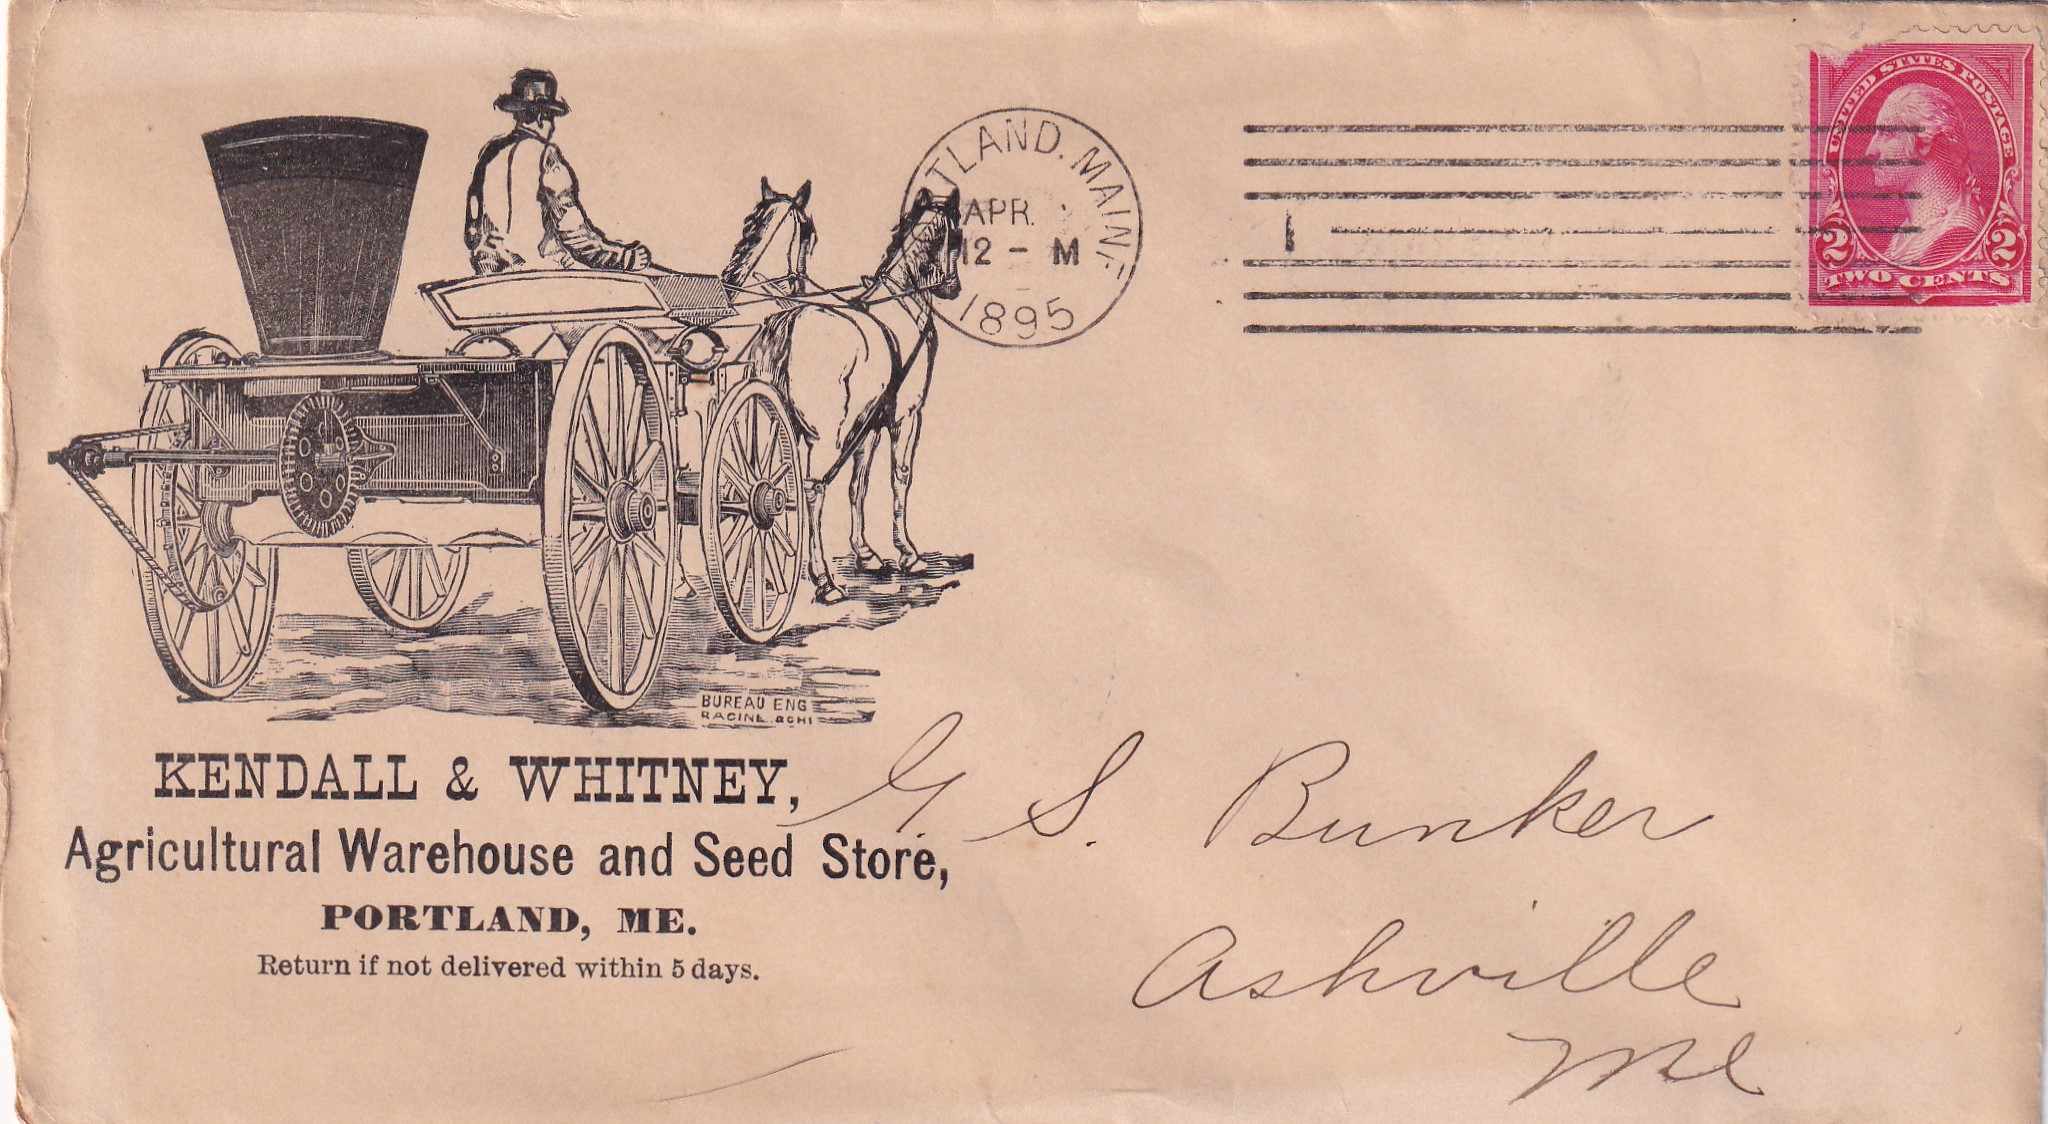 TLAND. MAINE
APR.
12 - M
1895
1
UNITED STATES POSTAGE
2 2
TWO CENTS
BUREAU ENG
RACINE & CHI
KENDALL & WHITNEY,
Agricultural Warehouse and Seed Store,
PORTLAND, ME.
Return if not delivered within 5 days.
G. S. Bunker
Ashville
Me